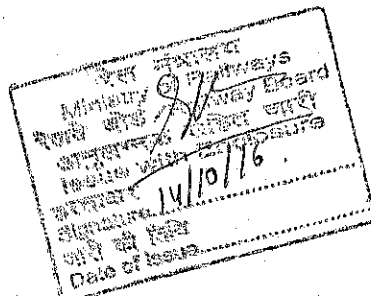 रेल मंत्रालय
Ministry of Railways
रेलवे बोर्ड Railway Board
जारी
Issue with Enclosure
हस्ताक्षर
Signature
14/10/16
जारी की तिथि
Date of Issue